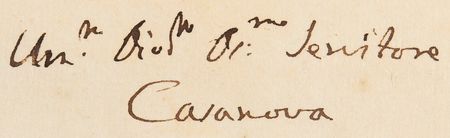 Um.^mo Dio^mo Di.^mo Servitore
Casanova